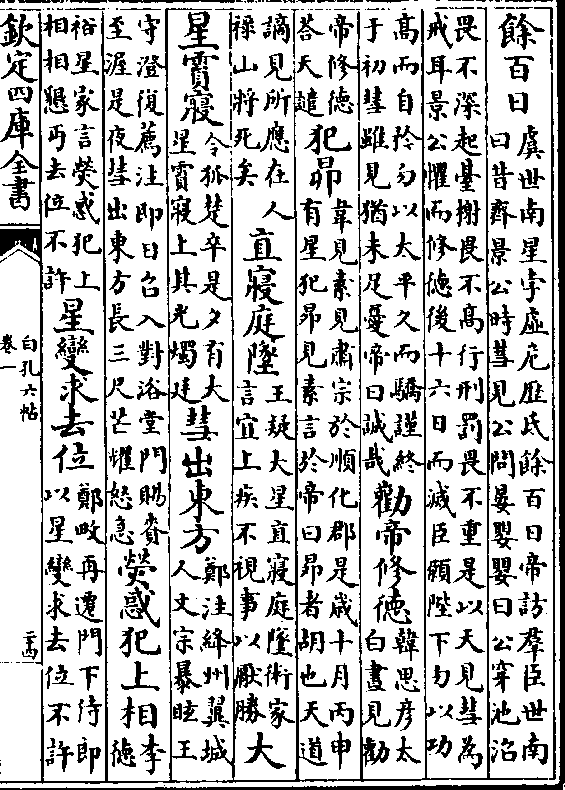 餘百日虞世南星孛虛危歷氐餘百日帝訪羣臣世南
曰昔齊景公時彗見公問晏嬰嬰曰公穿池沼
畏不深起臺榭畏不髙行刑罰畏不重是以天見彗為
戒耳景公懼而修德後十六日而滅臣願陛下勿以功
髙而自矜勿以太平久而驕謹終
于初彗雖見猶未足憂帝曰誠哉
勸帝修德
韓思彦太
白晝見勸
帝修德
荅天譴
犯昴
韋見素見肅宗於順化郡是嵗十月丙申
有星犯昴見素言於帝曰昴者胡也天道
謫見所應在人
禄山將死矣
直寢庭墜
王疑大星直寢庭墜術家
言宜上疾不視事以厭勝
大
星霣寢
令狐楚卒是夕有大
星霣寢上其光燭廷
彗出東方
鄭注絳州翼城
人文宗暴眩王
守澄復薦注即日召入對浴堂門賜賚
至渥是夜彗出東方長三尺芒耀怒急
熒惑犯上相
李
德
裕星家言熒惑犯上
相相懇丐去位不許
星變求去位
鄭畋再遷門下侍郎
以星變求去位不許
欽定四庫全書
白孔六帖
卷一